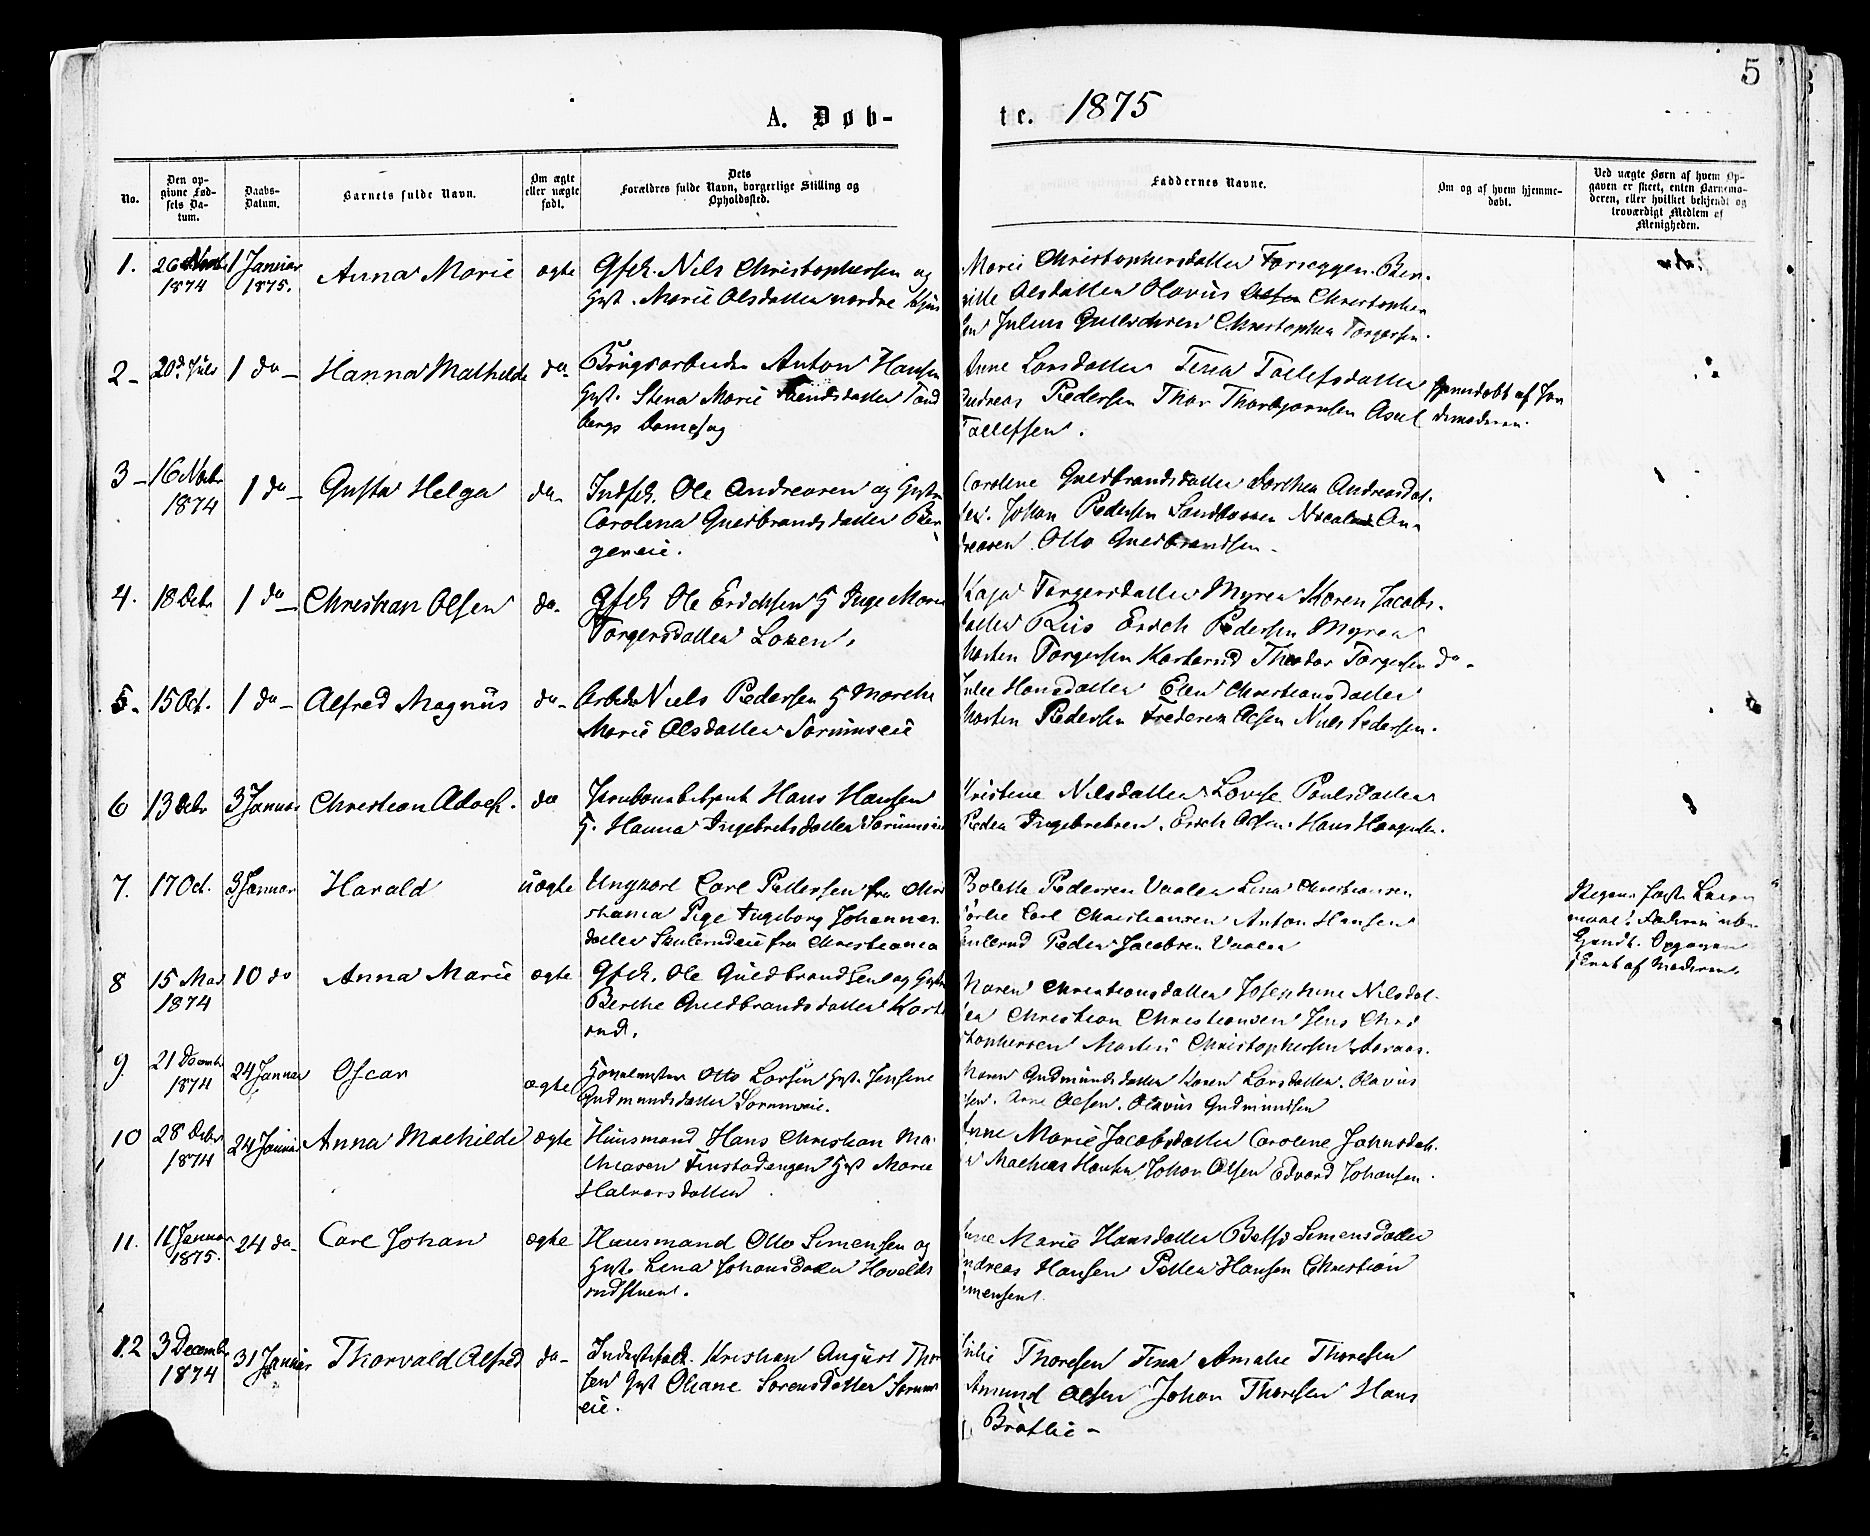 5
A. Døb-
te. 1875
No.
Den op-
givne Fød-
sels Da-
tum.
Daabs-
Datum.
Barnets fulde Navn.
Om ægte
eller uægte
født.
Dets
Forældres fulde Navn, borgerlige Stilling og
Opholdssted.
Faddernes Navne.
Om og af hvem hjemme-
døbt.
Ved uægte Børn af hvem Op-
gaven er skeet, enten Barnemo-
deren, eller hvilket bekjendt og
troværdigt Medlem af
Menigheden.
1.
26
1874
1 Januar
1875.
Anna Marie
ægte
Gfck. Nils Christophersen og
Hust. Marie Olsdatter nordre
Marie Christophersdatter
Olsdatter Olavus Christopher
Julius Christopher Torgersen.
2-
20de Juli
1 do
Hanna Mathilde
do-
Anton Hansen
Hust. Stina Marie
Anne Larsdatter Tina Tollefsdatter
Andreas Pedersen Thor Thorbjørnsen Axel
Tollefsen.
hjemdøbt af Jor
demoderen.
3-
16 Novbr
1874
1 do
Gusta Helga
do-
Indfck. Ole Andreasen og Hustr
Carolina Guldbrandsdatter Ber
gereie.
Caroline Guldbrandsdatter Dorthea Andreasdat-
ter. Johan Pedersen An-
dreasen Otto Guldbrandsen-
4.
18 Debr
1 do
Christian Olsen
do-
Gfck Ole Erichsen H Inge Marie
Torgersdatter Loken.
Kaja Torgersdatter Myren Karen Jacobs-
datter Riis Erich Pedersen Myren
Morten Torgersen Theodor Torgersen do-
5-
15 Oct.
1 do
Alfred Magnus
do-
Arbeider Niels Pedersen H Marthe
Marie Olsdatter Sørumseie
Julie Hansdatter Elen Christiansdatter
Morten Pedersen Olsen Niels Pedersen.
6
13 Debr
3 Januar
Christian Adolf.
do
Hans Hansen
H. Hanna Ingebretsdatter Sørumseie
Kristine Nilsdatter Lovise Paulsdatter
Peder Ingebretsen. Erich Olsen. Hans
7.
17 Oct.
3 Januar
Harald
uægte
Ungkarl Carl Pettersen fra Chri
stiania Pige Ingeborg Johannes-
datter Skulerudeie fra Christiania
Bolette Pedersen Vaalen Lina Christiansen
Carl Christiansen Anton Hansen
Peder Jacobsen Vaalen
Pigens første Leier
maal. Faderen ube
Opgaven
af Moderen.
8
15 Mai
1874
10 do
Anna Marie
ægte
Gfck. Ole Guldbrandsen og Hustr
Berthe Guldbrandsdatter Karte
rud.
Maren Christiansdatter Josephine Nilsdat-
ter Christian Christiansen Jens Chri
stophersen Martin Christophersen
9
21 Decembr
1874
24 Januar
Oscar
ægte
Otto Larsen Hst. Jensine
Gudmundsdatter Sørumseie.
Maren Gudmundsdatter Karen Larsdatter. Olavus
Arne Olsen. Olavus Gudmundsen
10
28 Debr
1874
24 Januar
Anna Mathilde
ægte
Huusmand Hans Christian Ma-
thiasen Finstadengen Hst Marie
Halvorsdatter
Anne Marie Jacobsdatter Caroline Johnsdat-
ter Mathias Johan Olsen Edvard Johansen.
11.
11 Januar
1875.
24 do-
Carl Johan
ægte
Huusmand Otto Simensen og
Hust. Lina Johansdatter
rudstuen.
Anne Marie Hansdatter Simensdatter
Andreas Hansen Petter Hansen Christian
Simensen
12
3 Decembr
1874
31 Januar
Thorvald Alfred
do-
Kristian August Thor
sen Hust Oliane Sørensdatter Sørums
eie.
Julie Thoresen Tina Amalie Thoresen
Amund Olsen Johan Thoresen Hans
Bråtlie-